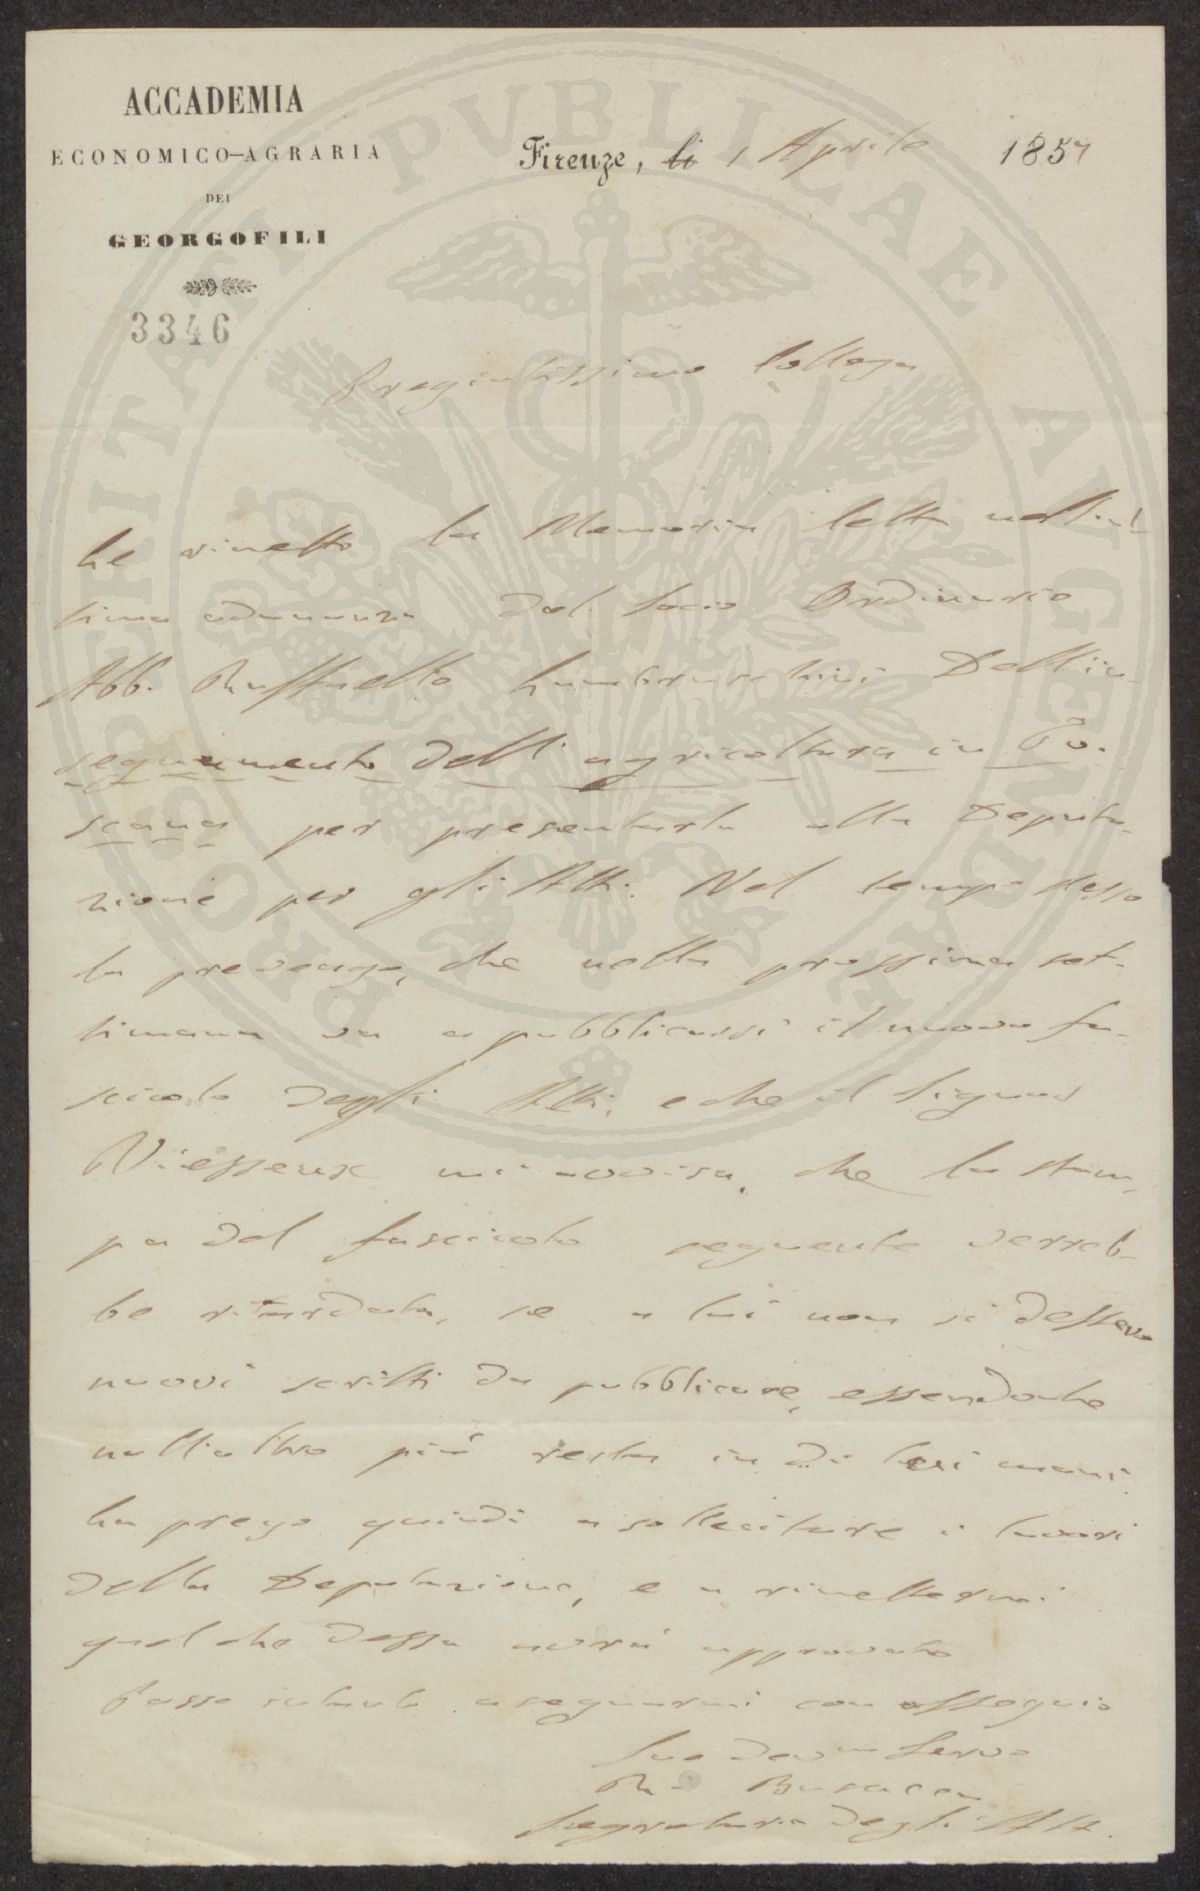 ACCADEMIA
ECONOMICO-AGRARIA
DEI
GEORGOFILI
3346
Firenze, li 1 Aprile 1857
Pregiatissimo Collega
Le rimetto la Memoria letta nell'ul-
tima adunanza dal Socio Ordinario
Abb. Raffaello Lambruschini Dell'in-
segnamento dell'agricoltura in To-
scana per presentarla alla Deputa-
zione per gli Atti. Nel tempo stesso
la prevengo, che nella prossima set-
timana va a pubblicarsi il nuovo fa-
scicolo degli Atti, e che il Signor
Viesseux mi avvisa, che la stam-
pa del fascicolo seguente verreb-
be ritardata, se a lui non si dessero
nuovi scritti da pubblicare, essendoche
null'altro più resta in di lui mani.
La prego quindi a sollecitare i lavori
della Deputazione, e a rimettermi
quel che dessa avrà approvato
Passo intanto a segnarmi con ossequio
Suo dev.mo Servo
Ra. Busacca
Segretario degli Atti.
PROSPERITATI PVBLICAE AVGENDAE